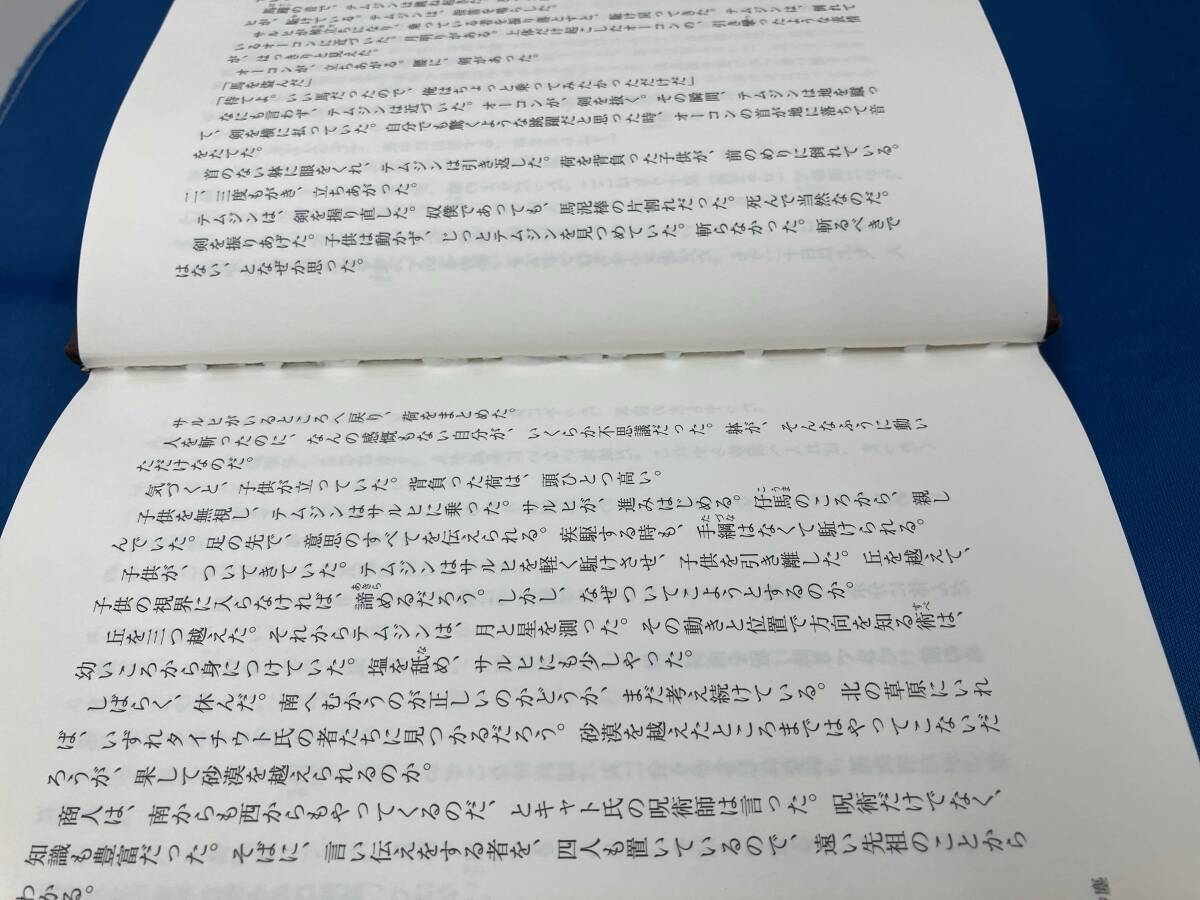 が、駆けている。テムジンは、指笛を鳴らした。
サルヒが棹立ちになり、乗っている者を振り落とすと、駆け戻ってきた。テムジンは、倒れて
いるオーコンに近づいた。月明りがある。上体だけ起こしたオーコンの、引き攣ったような表情
が、はっきりと見えた。
オーコンが、立ちあがる。腰に、剣があった。
「馬を盗んだ」
「待てよ。いい馬だったので、俺はちょっと乗ってみたかっただけだ」
なにも言わず、テムジンは近づいた。オーコンが、剣を抜く。その瞬間、テムジンは地を蹴っ
て、剣を横に払っていた。自分でも驚くような跳躍だと思った時、オーコンの首が地に落ちて音
をたてた。
首のない躰に眼をくれ、テムジンは引き返した。荷を背負った子供が、前のめりに倒れている。
二、三度もがき、立ちあがった。
テムジンは、剣を握り直した。奴僕であっても、馬泥棒の片割れだった。死んで当然なのだ。
剣を振りあげた。子供は動かず、じっとテムジンを見つめていた。斬らなかった。斬るべきで
はない、となぜか思った。
サルヒがいるところへ戻り、荷をまとめた。
人を斬ったのに、なんの感慨もない自分が、いくらか不思議だった。躰が、そんなふうに動い
ただけなのだ。
気づくと、子供が立っていた。背負った荷は、頭ひとつ高い。
子供を無視し、テムジンはサルヒに乗った。サルヒが、進みはじめる。仔馬のころから、親し
んでいた。足の先で、意思のすべてを伝えられる。疾駆する時も、手綱はなくて駆けられる。
子供が、ついてきていた。テムジンはサルヒを軽く駈けさせ、子供を引き離した。丘を越えて、
子供の視界に入らなければ、諦めるだろう。しかし、なぜついてこようとするのか。
丘を三つ越えた。それからテムジンは、月と星を測った。その動きと位置で方向を知る術は、
幼いころから身につけていた。塩を舐め、サルヒにも少しやった。
しばらく、休んだ。南へむかうのが正しいのかどうか、まだ考え続けている。北の草原にいれ
ば、いずれタイチウト氏の者たちに見つかるだろう。砂漠を越えたところまではやってこないだ
ろうが、果して砂漠を越えられるのか。
商人は、南からも西からもやってくるのだ、とキャト氏の呪術師は言った。呪術だけでなく、
知識も豊富だった。そばに、言い伝えをする者を、四人も置いているので、遠い先祖のことから
わかる。